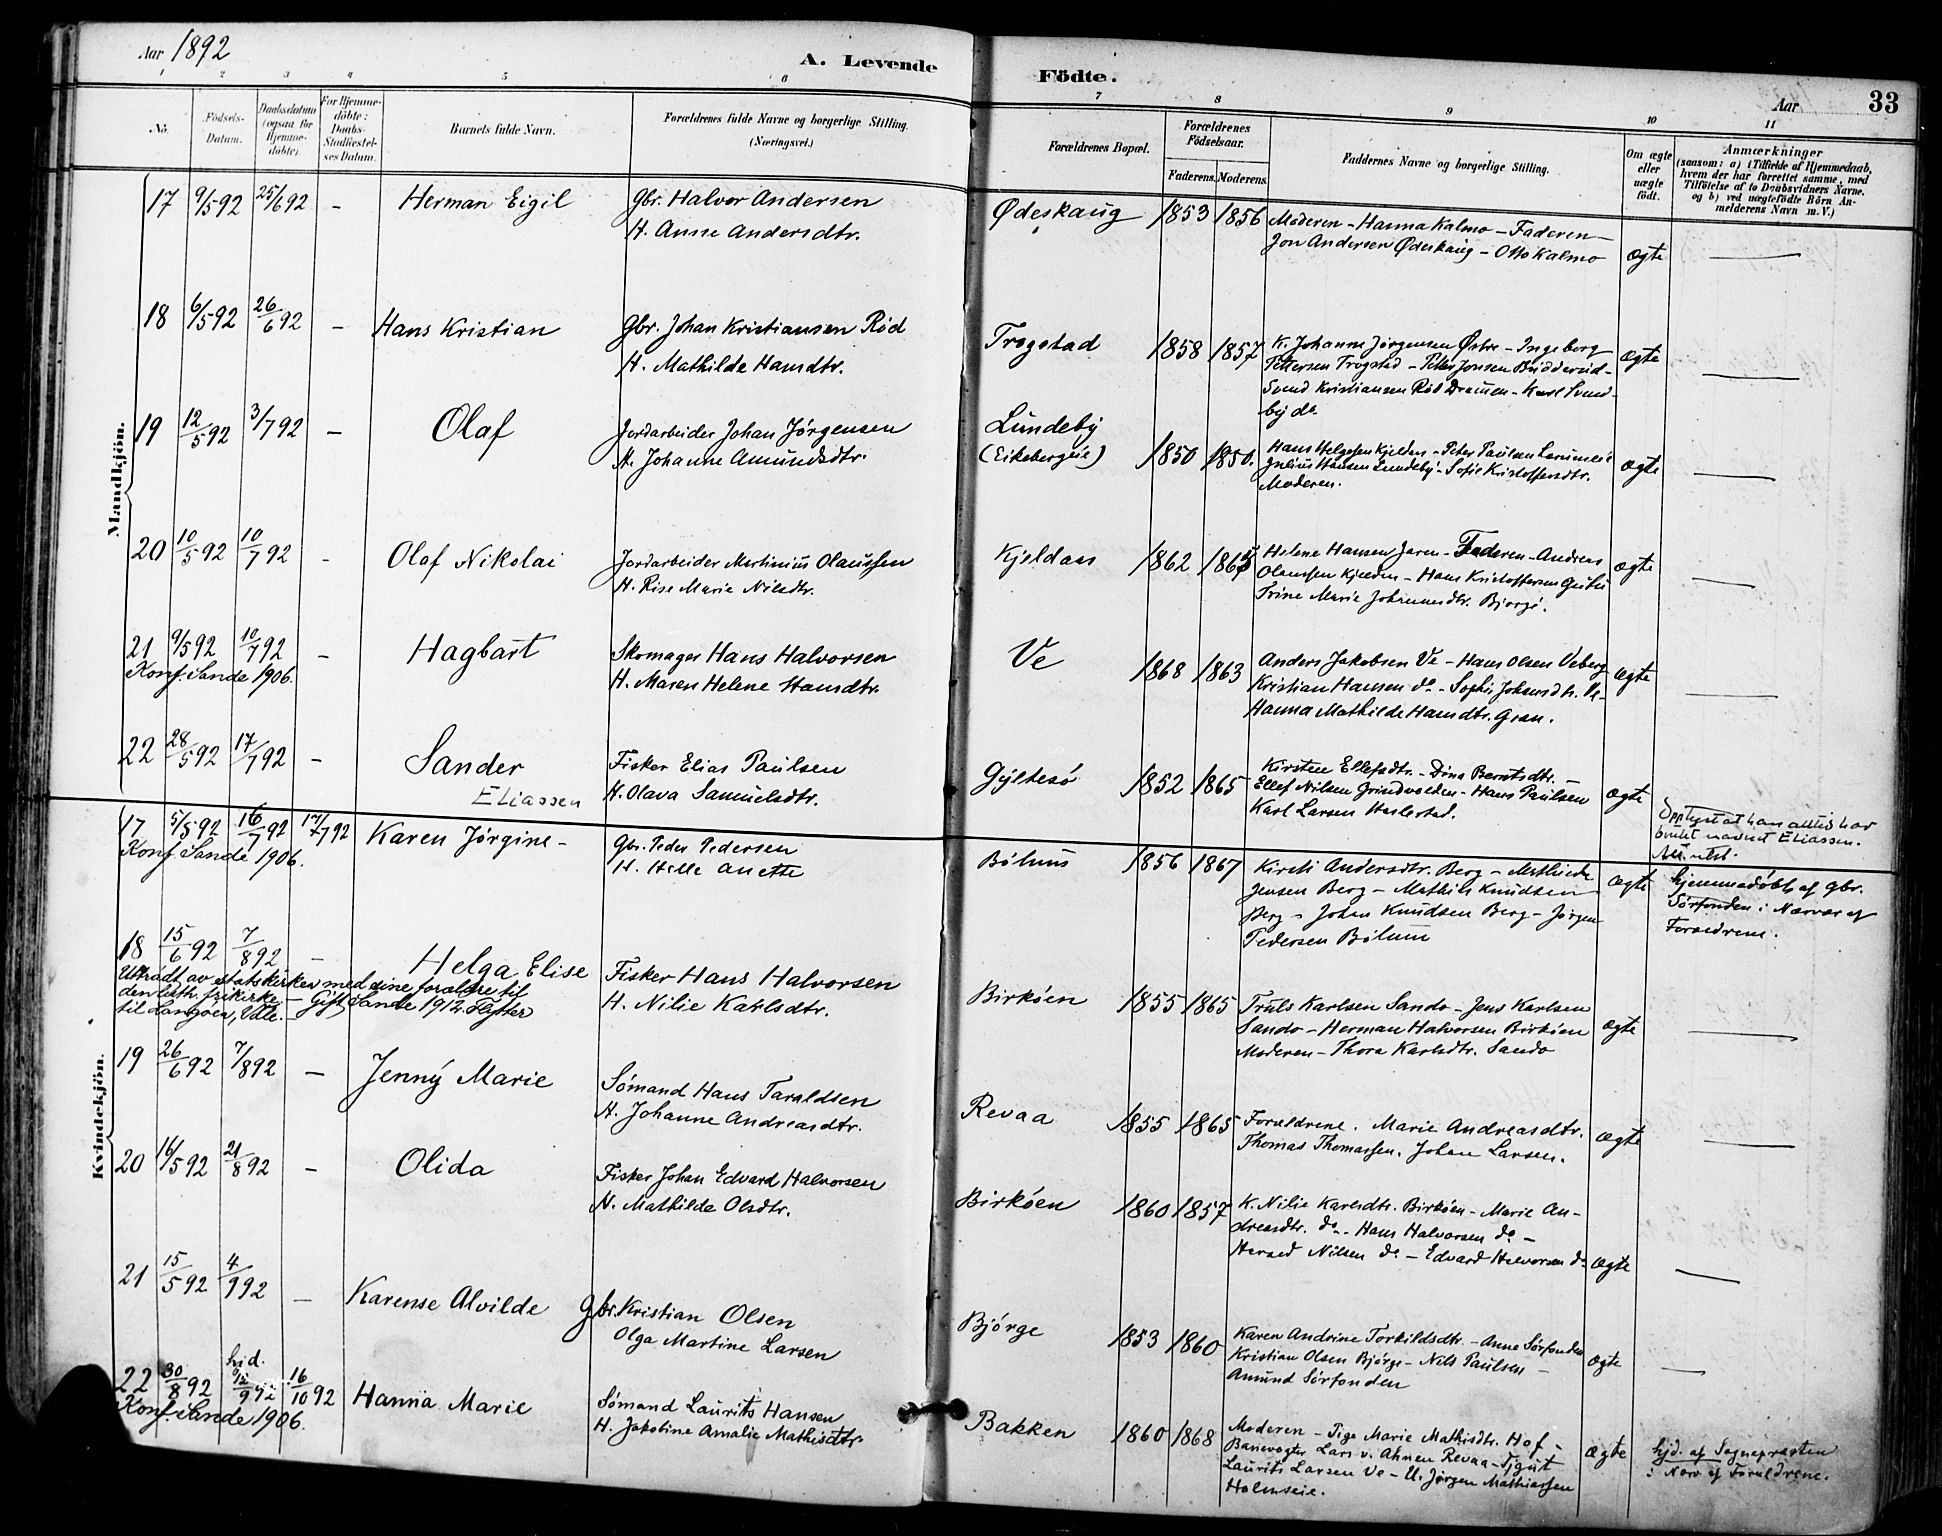 Aar 1892
A. Levende
Födte.
Aar
33
1 2 3 4 5 6
7 8 9 10 11
No.
Fødsels-Datum.
Daabsdatum (ogsaa for Hjemme-døbte).
For Hjemme-døbte: Daabs-Stadfæstel-ses Datum.
Barnets fulde Navn.
Forældrenes fulde Navne og borgerlige Stilling. (Næringsvei.)
Forældrenes Bopæl.
Forældrenes Födselsaar.
Faderens. Moderens.
Faddernes Navne og borgerlige Stilling.
Om ægte eller uægte født.
Anmærkninger
(saasom: a) i Tilfælde af Hjemmedaab,
hvem der har forrettet samme, med
Tilføielse af to Daabsvidners Navne,
og b) ved uægtefødte Børn An-
melderens Navn m. V.)
Mandkjön.
17 9/5 92 25/6 92 – Herman Eigil
Gbr. Halvor Andersen
H. Anne Andersdtr.
Ødeskaug 1853 1856
Moderen – Hanna Kalmo – Faderen –
Jon Andersen Ødeskaug – Otto Kalmo
ægte
18 6/5 92 26/6 92 – Hans Kristian
Gbr. Johan Kristiansen Rød
H. Mathilde Hansdtr.
Trogstad 1858 1857
K. Johanne Jørgensen Østre – Ingeborg
Pettersen Trogstad – Petter Jonsen Budderud –
Svend Kristiansen Rød Drammen – Karl Svend-
by do.
ægte
19 12/5 92 3/7 92 – Olaf
Jordarbeider Johan Jørgensen
H. Johanne Amundsdtr.
Lundeby
(Eikebergeie) 1850 1850.
Hans Helgesen Kjelden – Peter Paulsen
Julius Hansen Lundeby – Sofie Kristoffersdtr.
Moderen.
ægte
20 10/5 92 10/7 92 - Olaf Nikolai
Jordarbeider Martinius Olaussen
H. Rise Marie Nilsdtr.
Kjeldaas 1862 1865
Helene Hansen Jaren – Faderen – Andreas
Olaussen Kjelden – Hans Kristoffersen
Trine Marie Johannesdtr. Bjørge.
ægte
21 9/5 92 10/7 92 – Hagbart
Konf. Sande 1906.
Skomager Hans Halvorsen
H. Maren Helene Hansdtr.
Ve 1868 1863
Anders Jakobsen Ve – Hans Olsen Veberg
Kristian Hansen do – Sophie Johansdtr. Ve –
Hanna Mathilde Hansdtr. Gran.
ægte
22 28/5 92 17/7 92 – Sander
Eliassen
Fisker Elias Paulsen
H. Olava Samuelsdtr.
Gyltesø 1852 1865
Kirsten Ellefsdtr. – Dina Berntsdtr. –
Ellef Nilsen Grindvolden – Hans Paulsen
Karl Larsen Haslestad.
ægte
Opplyst at han alltid har
brukt navnet Eliassen.
Kvindekjön.
17 5/5 92 16/7 92 17/7 92 Karen Jørgine –
Konf. Sande 1906.
Gbr. Peder Pedersen
H. Helle Anette
Bølum 1856 1867
Kirsti Andersdtr. Berg – Mathilde
Jensen Berg – Mathils Knudsen
Berg – Johan Knudsen Berg – Jørgen
Pedersen Bølum
ægte
hjemmedøbt af gbr.
Sørfonden i Nærvær af
Forældrene.
18 15/6 92 7/8 92 – Helga Elise
Uttrådt av statskirken med sine forældre til
den luth. frikirke. – Gift Sande 1912. Flytter
til Langøen, Våle.
Fisker Hans Halvorsen
H. Nilie Karlsdtr.
Birkøen 1855 1865
Truls Karlsen Sando – Jens Karlsen
Sando – Herman Halvorsen Birkøen
Moderen – Thora Karlsdtr. Sando
ægte
19 26/6 92 7/8 92 – Jenny Marie
Sømand Hans Taraldsen
H. Johanne Andreasdtr.
Revaa 1855 1865
Forældrene. Marie Andreasdtr.
Thomas Thomassen. Johan Larsen.
ægte
20 14/5 92 21/8 92 – Olida
Fisker Johan Edvard Halvorsen
H. Mathilde Olsdtr.
Birkøen 1860 1857
K. Nilie Karlsdtr. Birkøen – Marie An-
dreasdtr. do – Hans Halvorsen do –
Nilsen do – Edvard Halvorsen do
ægte
21 15/5 92 4/9 92 – Karense Alvilde
Gbr. Kristian Olsen
Olga Martine Larsen
Bjørge 1853 1860
Karen Andrine Torkildsdtr. – Anne Sørfonden
Kristian Olsen Bjørge – Nils Paulsen –
Amund Sørfonden
ægte
22 30/8 92 hjd. 12/9 92 16/10 92 Hanna Marie
Konf. Sande 1906.
Sømand Laurits Hansen
H. Jakobine Amalie Mathisdtr.
Bakken 1860 1868
Moderen – Pige Marie Mathisdtr. Hof –
Banevogter Lars Revaa –
Laurits Larsen Ve – U. Jørgen Mathiassen
Holmseie.
ægte
hjd. af Sognepresten
i Nærv. af Forældrene.